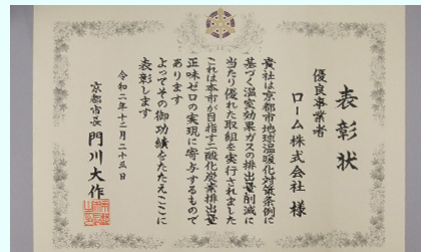 表彰状
優良事業者
ローム株式会社 様
貴社は京都市地球温暖化対策条例に
基づく温室効果ガスの排出量削減に
当たり優れた取組を実行されました
これは本市が目指す二酸化炭素排出量
正味ゼロの実現に寄与するもので
あります
よってその御功績をたたえここに
表彰します
令和二年十二月二十五日
京都市長 門川大作